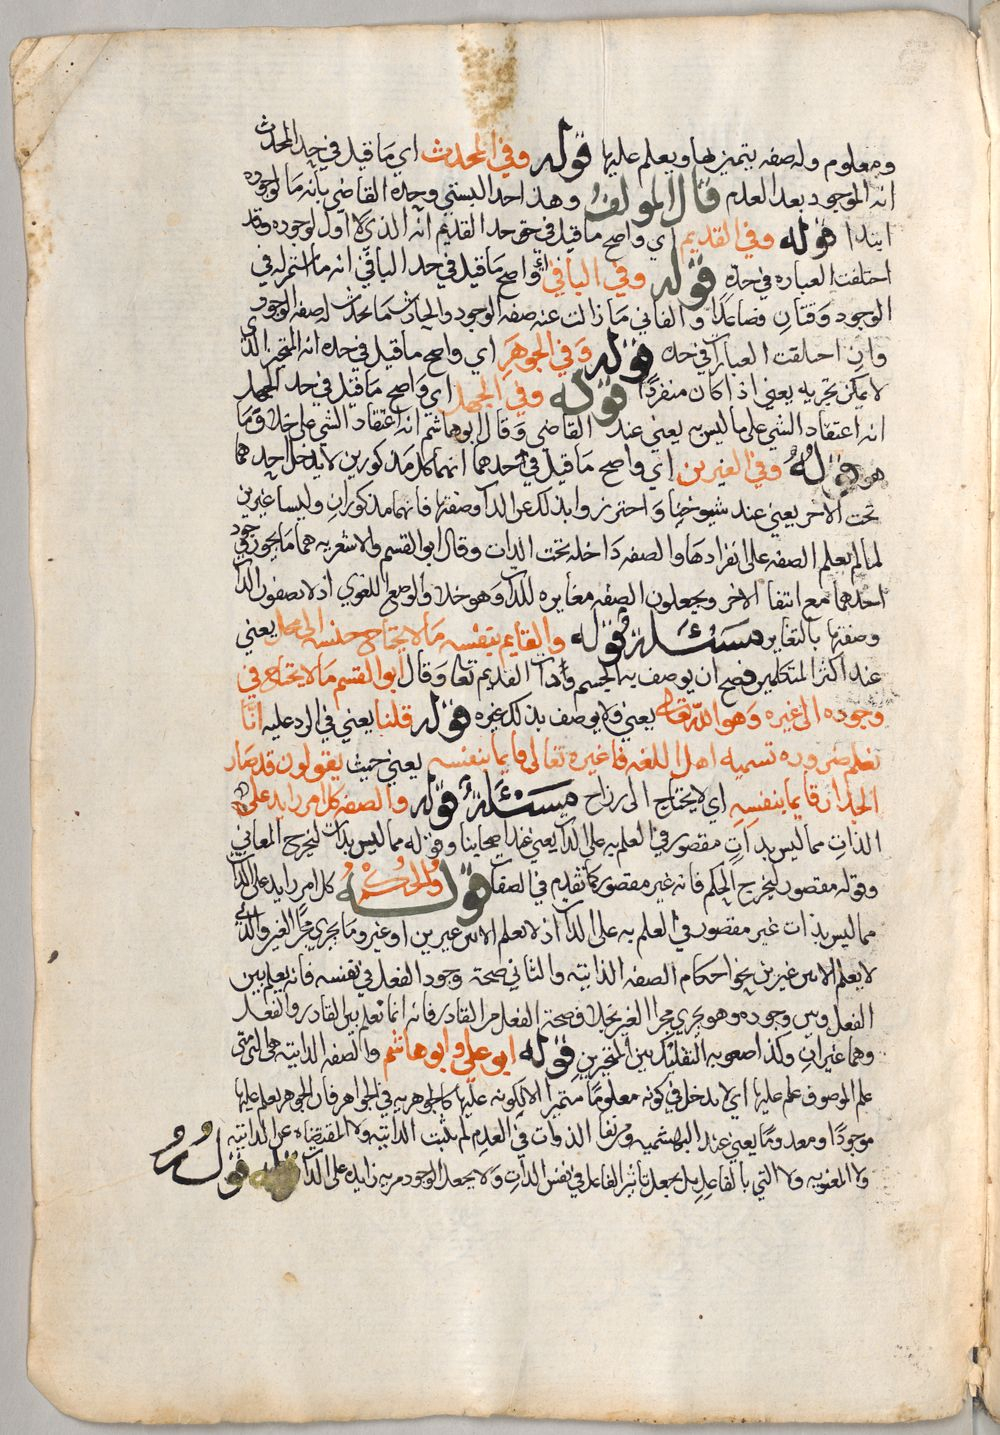 ومعلوم وله صفه يتميز بها ويعلم عليها قوله وفي المحدث اي ما قيل في حد المحدث
انه الموجود بعد العدم قال المولف وهذا حد البستي وحده القاضي بانه ما لوجوده
ابتدا قوله وفي القديم اي واصح ما قيل في حد القديم انه الذي لا اول لوجوده وقد
اختلفت العباره في حده قوله وفي الباقي اي واصح ما قيل في حد الباقي انه ما استمر له في
الوجود وقتان فصاعدا والفاني ما زالت عنه صفه الوجود والحادث ما تجددت له صفه الوجود
وان اختلفت العبارات في حده قوله وفي الجوهر اي واصح ما قيل في حده انه المتحيز الذي
لا يمكن تجزيه يعني اذا كان منفردا قوله وفي الجهل اي واصح ما قيل في حد الجهل
انه اعتقاد الشي على ما ليس به يعني عند القاضي وقال ابو هاشم انه اعتقاد الشي على خلاف ما
هو قوله وفي الغيرين اي واصح ما قيل في احدهما انهما كل مذكورين لا يدخل احدهما
تحت الاخر يعني عند شيوخنا واحترزوا بذلك عن الذات وصفتها فانهما مذكوران وليسا غيرين
لما لم تعلم الصفه على انفرادها والصفه داخله تحت الذات وقال ابو القسم والاشعريه هما ما يجوز وجود
احدهما مع انتفا الاخر ويجعلون الصفه مغايره للذات وهو خلاف الوضع اللغوي اذ لا يصفون الذات
وصفتها بالتغاير مسئلة قوله والقايم بنفسه ما لا يحتاج جنسه الى محل يعني
عند اكثر المتكلمين فصح ان يوصف به الجسم وذات القديم تعالى وقال ابو القسم ما لا يحتاج في
وجوده الى غيره وهو الله تعالى يعني ولا يوصف بذلك غيره قوله قلنا يعني في الرد عليه انا
نعلم ضروره تسميه اهل اللغه فاغيره تعالى قايما بنفسه يعني حيث يقولون قد صار
الجدار قايما بنفسه اي لا يحتاج الى رزاح مسئلة قوله والصفه كل امر زايد على
الذات مما ليس بذات مقصور في العلم به على الذات يعني عند اصحابنا وقوله مما ليس بذات لتخرج المعاني
وقوله مقصور ليخرج الحكم فانه غير مقصور كما تقدم في الصفات قوله والحكم كل امر زايد على الذات
مما ليس بذات غير مقصور في العلم به على الذات اذ لا يعلم الا بين غيرين او غير وما يجري مجرا الغير والذي
لا يعلم الا بين غيرين نحو احكام الصفه الذاتيه والثاني صحة وجود الفعل في نفسه فانه يعلم بين
الفعل وبين وجوده وهو يجري مجرا الغير بخلاف صحة الفعل من القادر فانه انما تعلم بين القادر والفعل
وهما غيران وكذا صعوبه التفكيك بين المتحيزين قوله ابو علي وابو هاشم والصفه الذاتيه هي التي متى
علم الموصوف علم عليها اي لا يدخل في كونه معلوما متميزا الا لكونه عليها كالجوهريه في الجواهر فان الجوهر يعلم عليها
موجودا ومعدوما يعني عند البهشميه ومن نفا الذوات في العدم لم يثبت الذاتيه ولا المقتضاه عن الذاتيه
ولا المعنويه ولا التي بالفاعل بل يجعل تاثير الفاعل في نفس الذات ولا يجعل الوجود مزيه زايده على الذات قوله